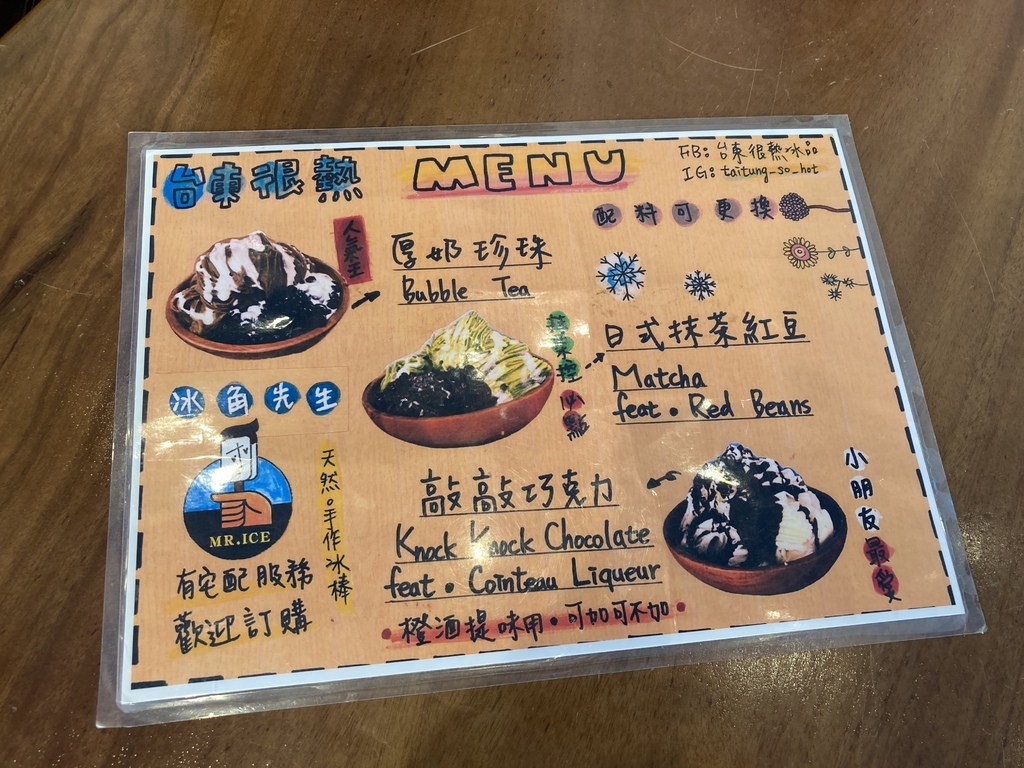 台東很熱
MENU
FB: 台東很熱冰品
IG: taitung_so_hot
配料可更換
人氣王
厚奶珍珠
Bubble Tea
抹茶控必點
日式抹茶紅豆
Matcha
feat. Red Beans
冰角先生
MR.ICE
天然。手作冰棒
有宅配服務
歡迎訂購
敲敲巧克力
Knock Knock Chocolate
feat. Cointeau Liqueur
橙酒提味用。可加可不加
小朋友最愛